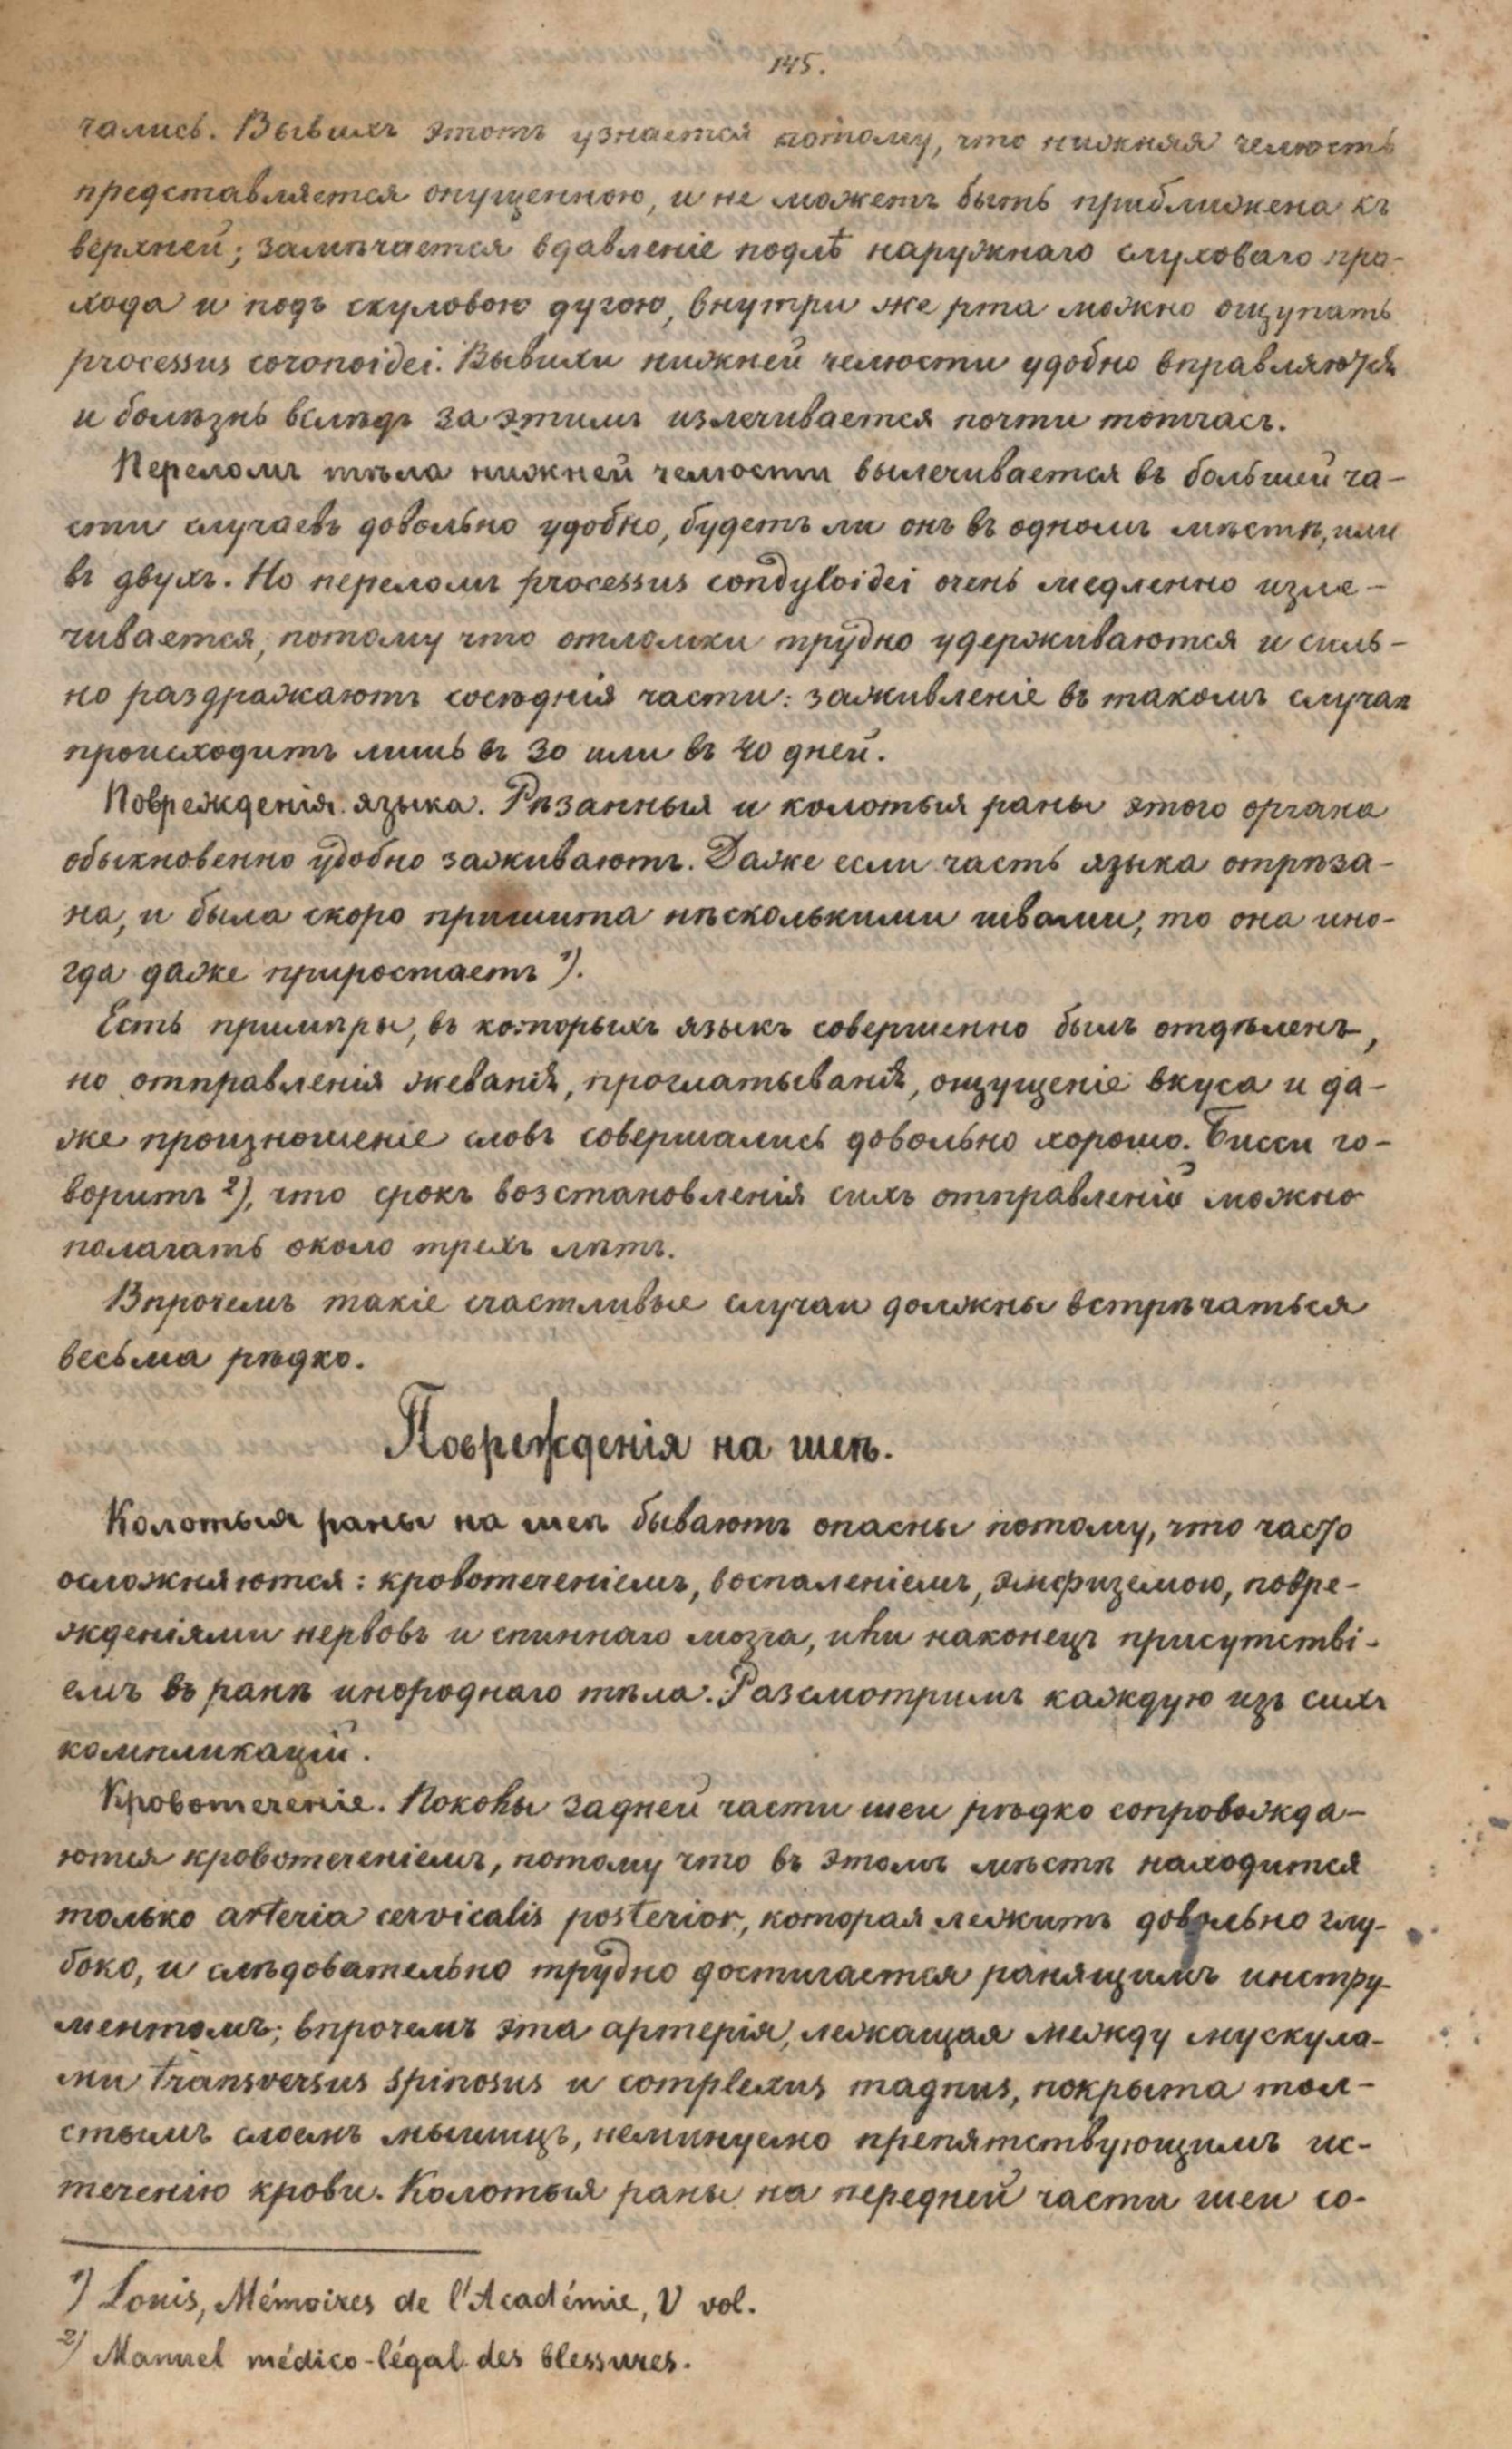 145.
чались. Вывихъ этотъ узнается потому, что нижняя челюсть
представляется опущенною, и не можетъ быть приближена къ
верхней; замѣчается вдавленіе подлѣ наружнаго слуховаго про-
хода и подъ скуловою дугою, внутри же рта можно ощупать
processus coronoidei. Вывихи нижней челюсти удобно вправляются
и болѣзнь вслѣдъ за этимъ излечивается почти тотчасъ.
Переломъ тѣла нижней челюсти вылечивается въ большей ча-
сти случаевъ довольно удобно, будетъ ли онъ въ одномъ мѣстѣ, или
въ двухъ. Но переломъ processus condyloidei очень медленно изле-
чивается, потому что отломки трудно удерживаются и силь-
но раздражаютъ сосѣднія части: заживленіе въ такомъ случаѣ
происходитъ лишь въ 30 или въ 40 дней.
Поврежденія языка. Рѣзанныя и колотыя раны этого органа
обыкновенно удобно заживаютъ. Даже если часть языка отрѣза-
на, и была скоро пришита нѣсколькими швами, то она ино-
гда даже приростаетъ 1).
Есть примѣры, въ которыхъ языкъ совершенно былъ отдѣленъ,
но отправленія жеванія, проглатыванія, ощущеніе вкуса и да-
же произношеніе словъ совершались довольно хорошо. Бисси го-
воритъ 2), что срокъ возстановленія сихъ отправленій можно
полагать около трехъ лѣтъ.
Впрочемъ такіе счастливые случаи должны встрѣчаться
весьма рѣдко.
Поврежденія на шеѣ.
Колотыя раны на шеѣ бываютъ опасны потому, что часто
осложняются: кровотеченіемъ, воспаленіемъ, эмфиземою, повре-
жденіями нервовъ и спиннаго мозга, или наконецъ присутстві-
емъ въ ранѣ инороднаго тѣла. Разсмотримъ каждую изъ сихъ
компликацій.
Кровотеченіе. Поколы задней части шеи рѣдко сопровожда-
ются кровотеченіемъ, потому что въ этомъ мѣстѣ находится
только arteria cervicalis posterior, которая лежитъ довольно глу-
боко, и слѣдовательно трудно достигается ранящимъ инстру-
ментомъ; впрочемъ эта артерія, лежащая между мускула-
ми transversus spinosus и complexus magnus, покрыта тол-
стымъ слоемъ мышицъ, неминуемо препятствующимъ ис-
теченію крови. Колотыя раны на передней части шеи со-
1) Louis, Mémoires de l'Académie, V vol.
2) Manuel médico-légal des blessures.